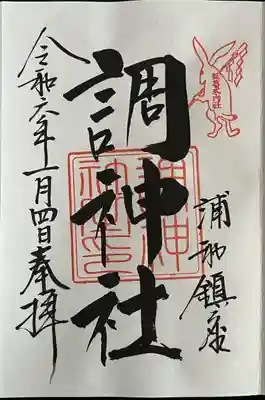 浦和鎮座
調神社
令和六年一月四日奉拝